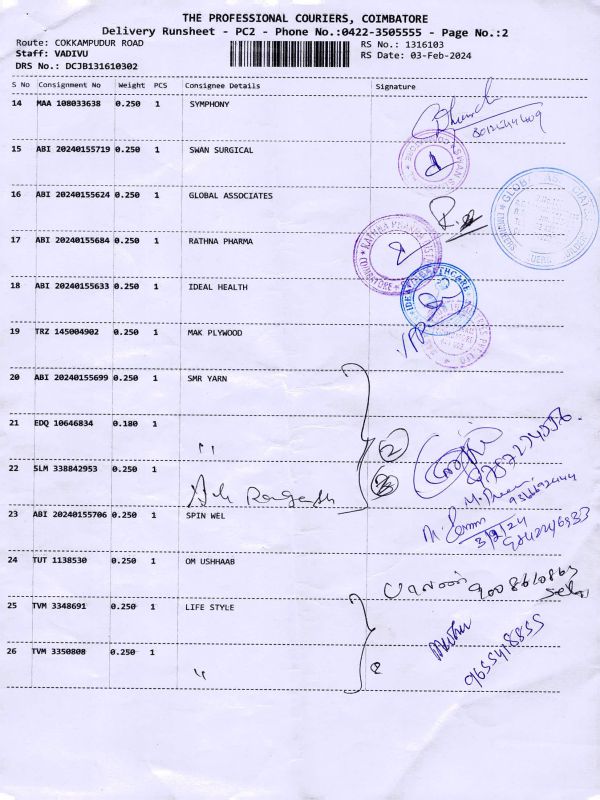 THE PROFESSIONAL COURIERS, COIMBATORE
Delivery Runsheet - PC2 - Phone No.:0422-3505555 - Page No.:2
Route: COKKAMPUDUR ROAD
RS No.: 1316103
Staff: VADIVU
RS Date: 03-Feb-2024
DRS No.: DCJB131610302
S No Consignment No Weight PCS Consignee Details Signature
14 MAA 108033638 0.250 1 SYMPHONY
15 ABI 20240155719 0.250 1 SWAN SURGICAL
16 ABI 20240155624 0.250 1 GLOBAL ASSOCIATES
17 ABI 20240155684 0.250 1 RATHNA PHARMA
18 ABI 20240155633 0.250 1 IDEAL HEALTH
19 TRZ 145004902 0.250 1 MAK PLYWOOD
20 ABI 20240155699 0.250 1 SMR YARN
21 EDQ 10646834 0.180 1 "
22 SLM 338842953 0.250 1
23 ABI 20240155706 0.250 1 SPIN WEL
3/2/24
24 TUT 1138530 0.250 1 OM USHHAAB
25 TVM 3348691 0.250 1 LIFE STYLE
9655418855
26 TVM 3350808 0.250 1 "